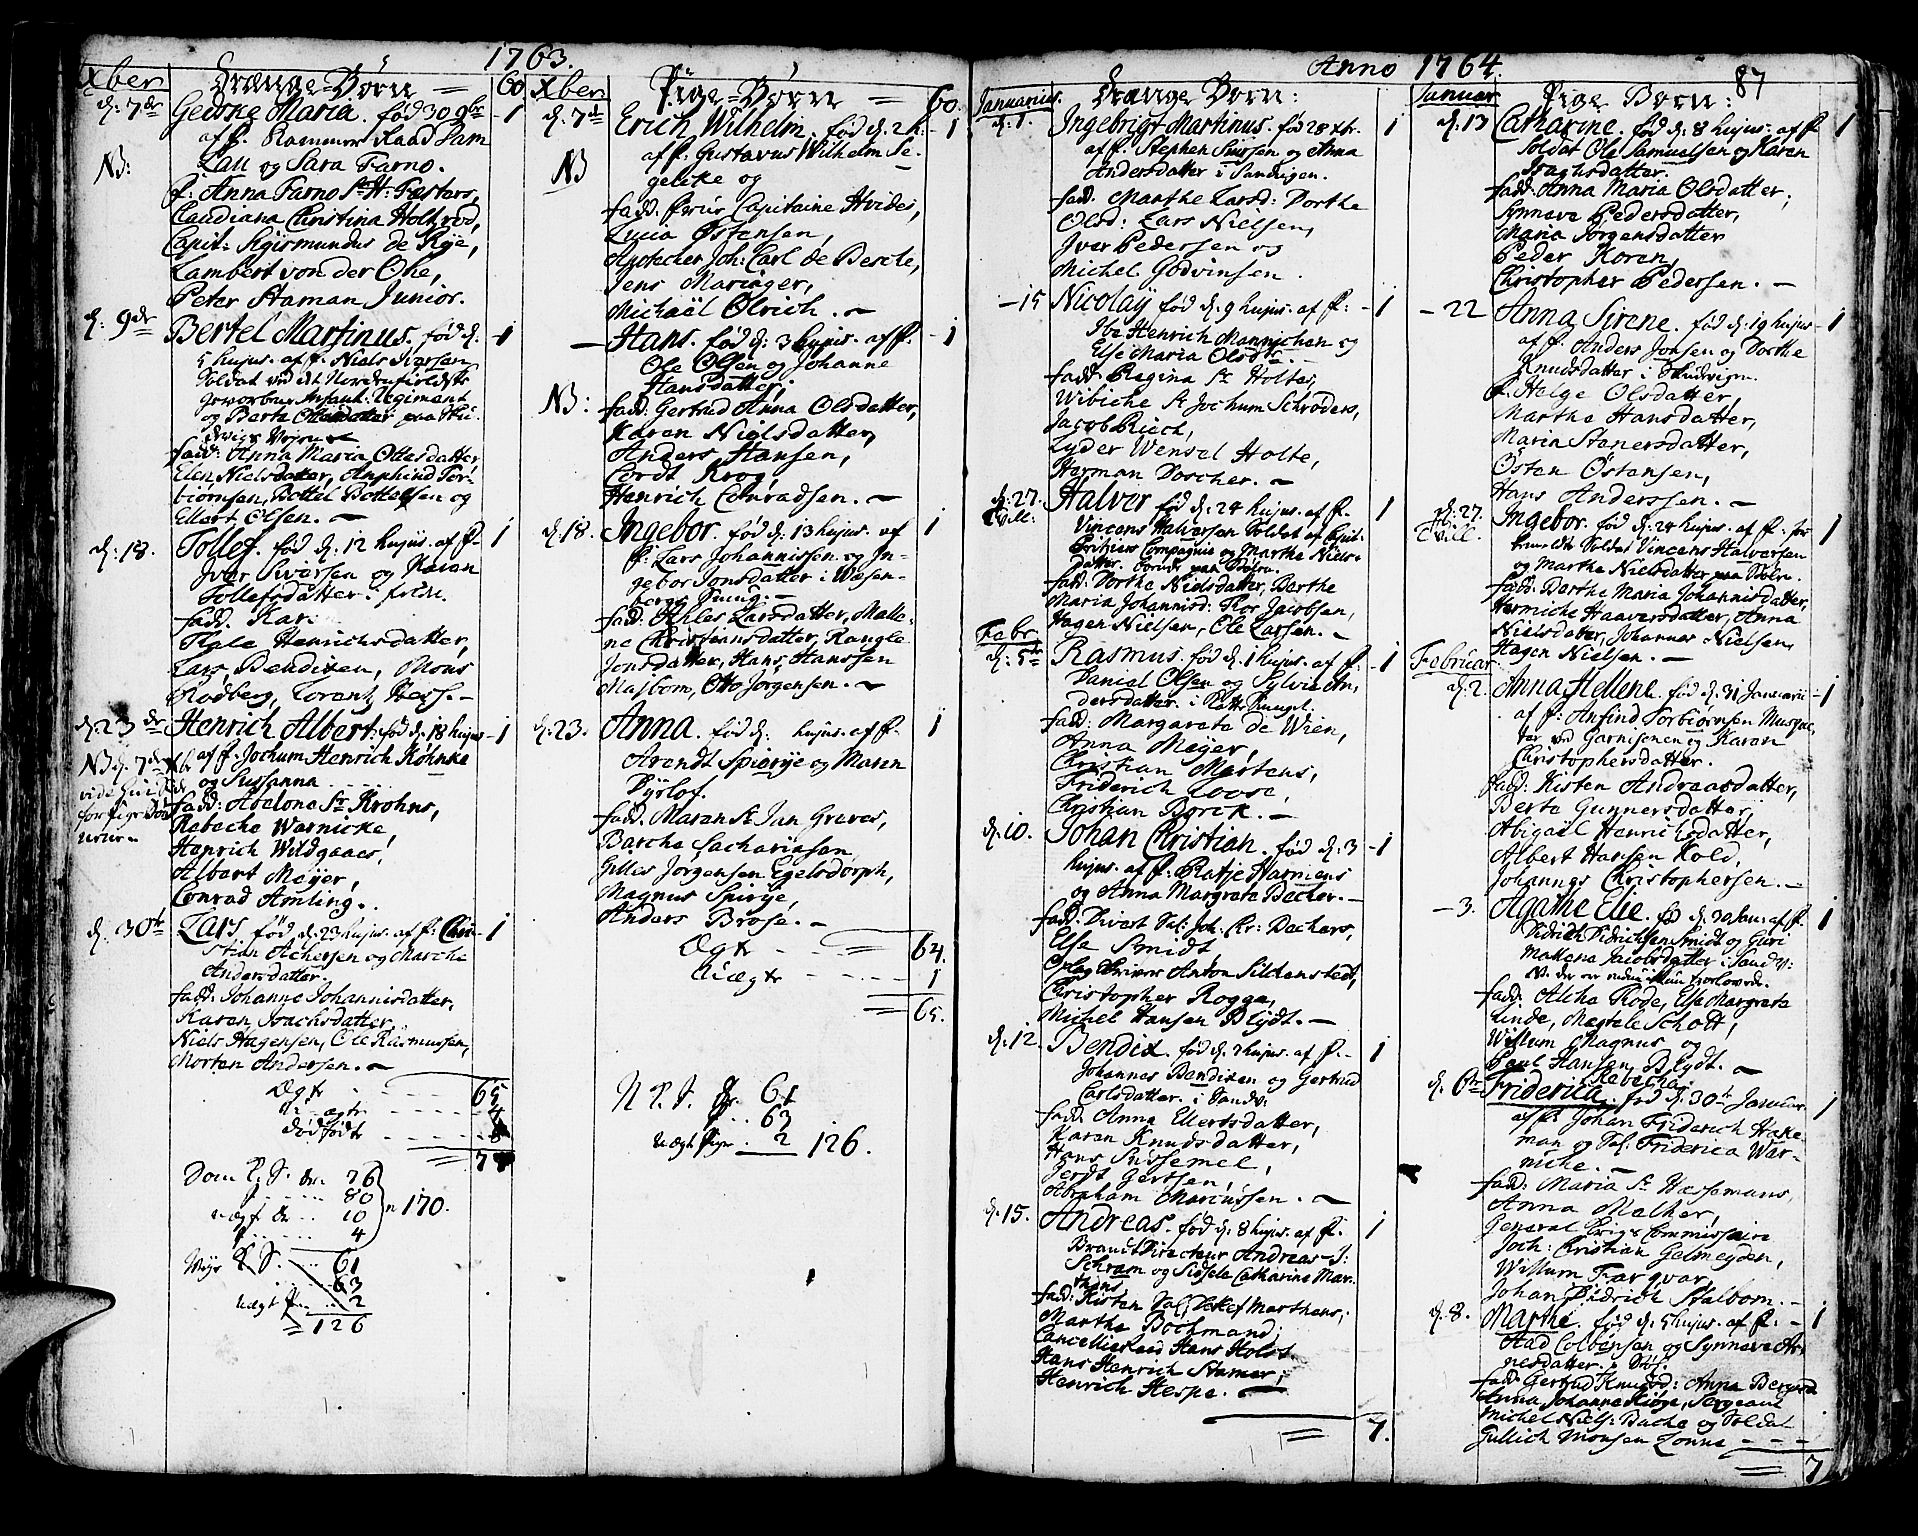 1763.
Xber
Drænge-Børn =
60
d: 7de
George Maria. fød 30 9br
1
af f. Rammer Raad Sam
NB:
Lau og Sara Farno.
f. Anna Farno Sr H: Fæsters,
Claudiana Christina Holtrod,
Capit: Sigismundus de Rÿe,
Lambert von der Ohe,
Peter Haman Junior.
d: 9de
Bertel Martinus. fød d:
1
5 hujus. af f. Niels Ivarsen
Soldat ved det Nordenfieldske
Gevorbne Infant: Regiment
og Berte Olesdatter paa Sku
devigs Veÿen
fadd: Anna Maria Ottesdatter
Elen Nielsdatter, Anphind Tor-
biørnsen, Bottel Bottelsen og
Ellert Olsen. —
d: 18.
Tollef. fød d: 12 hujus. af f.
1
Iver Iversen og Karen
Tollefsdatter.
fadd. Kar
Kale Henrichsdatter,
Lars Bendixen, Mons
Rodberg, Lorentz Hesse. —
d: 23de
Henrich Albert: fød d: 18 hujus
1
af f. Jochum Henrich Køhnke
og Susanna
NB d. 7de Xbr
fadd: Abelone Sr Krohns,
Rebecka Warnicke,
Henrich Wildgaaes,
Albert Meÿer,
Conrad Amling.
d. 30te
Lars fød d: 23 hujus. af f: Chri-
1
stian Achersen og Marche
Andersdatter.
fadd: Johanne Johannisdatter,
Karen Isachsdatter
Niels Hagensen, Ole Rasmussen,
Morten Andersen. —
Ægte
65
U-ægte
4
dødfødte
Dom K. S. dr. 76
f. 80
uægt dr. 10
f. 4
170.
Nÿe K. S. 61
63
uægt f. 2
126
Xber
Pige-Børn =
60.
d. 7de
Erich Wilhelm. fød d: 2 h.
1
NB
af f. Gustavus Wilhelm Se-
gelcke og
fadd. Frue Capitaine Hvides,
Lucia Østensen,
Apotecher Joh: Carl de Besche,
Jens Maringer,
Michaël Olrich. —
— Hans. fød d: 3 hujus. af f.
1
Ole Olsen og Johanne
Hansdatter,
NB:
fadd: Gertrud Anna Olsdatter,
Karen Nielsdatter,
Anders Hansen,
Cordt Krog,
Henrich Conradsen. —
d: 18.
Ingebor. fød d: 13 hujus. af
1
f. Lars Johannissen og In-
gebor Jonsdatter i Wesen-
bergs Smug. —
fadd: Ahles Larsdatter, Malle-
ne Christiansdatter, Rangle
Jonsdatter, Hans Hanssen
Majbom, Otto Jorgensen. —
d: 23.
Anna. fød d: hujus. af f.
1
Arendt Spierÿe og Maren
Dÿrlof.
fadd. Maren Sr Jan Greves,
Barcha Sachariasen
Gilles Jørgensen Egelsdorph,
Magnus Spirÿe,
Anders Brose. —
Ægte
64.
Uægte
1
65.
N K. S. dr. 61
63
uægt Piger 2 126.
Anno 1764.
87
Januarius.
Drænge Børn:
d: 1.
Ingebrigt Martinus. fød 28 xbr.
1
af f. Stephen Siursen og Anna
Andersdatter i Sandvigen.
fadd: Marthe Larsd: Dorthe
Olsd: Lars Nielsen,
Iver Pedersen og
Michel Godvinsen.
— 15
Nicolaÿ fød d: 9 hujus. af f.
1
Ibe Henrich Mannichen og
Else Maria Olsdr.
fadd: Regina Sr Holtes,
Wibiche Sr Jochum Schrøders,
Jacob Riech,
Lyder Wensel Holte,
Herman Doscher. —
d: 27.
Halvor fød d: 24 hujus. af f.
1
Tvill:
Vincens Halvorsen Soldat af Capit:
Fritzners Compagnie og Marthe Niels-
datter.
fadd: Dorthe Nielsdatter, Berthe
Maria Johannisd: Thor Jacobsen,
Hagen Nielsen, Ole Larsen. —
Febr.
d: 5te
Rasmus. fød d. 1 hujus. af f.
1
Daniel Olsen og Sylvie An-
dersdatter. i Rotte Smuget.
fadd: Margareta de Wien,
Anna Meÿer,
Christian Mortens,
Friderich Loose,
Christian Borck. —
d. 10.
Johan Christian. fød d. 3
1
hujus. af f. Ratje Harmens
og Anna Margreta Becker. —
fadd: Divert Sal: Joh. Kr: Deckers,
Else Smidt,
Oplag Skriver Anton Silchenstedt,
Christopher Rogge,
Michel Hansen Blÿdt. —
d: 12.
Bendix. fød d. 7 hujus. af f.
1
Johannes Bendixen og Gertrud
Carlsdatter. i Sandv:
fadd: Anna Ellertsdatter,
Karen Knudsdatter,
Hans Sussemel,
Gerdt Gertsen,
Abraham Marcussen. —
d. 15.
Andreas. fød d: 8 hujus. af f.
1
Brandt Directeur Andreas J:
Schram og Sidsele Catharine Mar-
thens
fadd: Kisten Sal: Detlef Marthens,
Marthe Bochmand,
Cancellieraad Hans Holst
Hans Henrich Stamer,
Henrich Hespe. —
7.
Januar
Pige Børn:
d: 13
Catharine. fød d: 8 hujus. af f.
1
Soldat Ole Samuelsen og Karen
Isachsdatter.
fadd: Anna Maria Olsdatter,
Synneve Pedersdatter,
Maria Jørgensdatter
Peder Koren,
Christopher Pedersen. —
— 22
Anna Sirene. fød d. 19 hujus
1
af f. Anders Jonsen og Dorthe
Knudsdatter i Skudvigen.
f. Helge Olsdatter,
Marthe Hansdatter,
Marin Stanersdatter,
Østen Østensen,
Hans Anderssen. —
d: 27.
Ingebor. fød d: 24 hujus. af f. for
1
Tvill.
benævndte Soldat Vincens Halvorsen
og Marthe Nielsdatter
fadd: Berthe Maria Johannisdatter,
Hermiche Haaversdatter, Anna
Nielsdatter, Johannes Nielsen,
Hagen Nielsen. —
Februar
d. 2
Anna Hellene. fød d: 31 Januarii
1
af f: Anfind Torbiørnsen Musque
ter ved Garnisonen og Karen
Christophersdatter.
fadd: Kisten Andreasdatter,
Berte Gunnersdatter,
Abigaël Henrichsdatter,
Albert Hansen Kold,
Johannes Christophersen. —
— 3.
Agathe Elie. fød d: 30 Jan: af f.
1
Didrich Didrichsen Smidt og Guri
Malena Jacobsdatter i Sandv:
fadd: Alcha Rode, Else Margrete
Linde, Megtele Schott,
Willum Magnus og
Poul Hansen Blÿdt. —
d. 6te
Friderica Rebecka. fød d: 30te Januar
1
af f. Johan Friderich Hake-
man og Sal: Friderica War-
niche. —
fadd: Maria Sr Hassemans,
Anna Malher,
General Krigs Commissaire
Joch: Christian Gelmeyden,
Willum Færgvar,
Johan Didrich Stalbom. —
d. 8.
Marthe. fød d: 5 hujus. af f.
1
Aad Colbensen og Synneve Ar-
nesdatter.
fadd: Gertrud Knudsd: Anna Bergard
Anna Johanne Kioge, Sergeant
Michel Niels: Bache og Soldat
Gullich Monsen Lonne
7